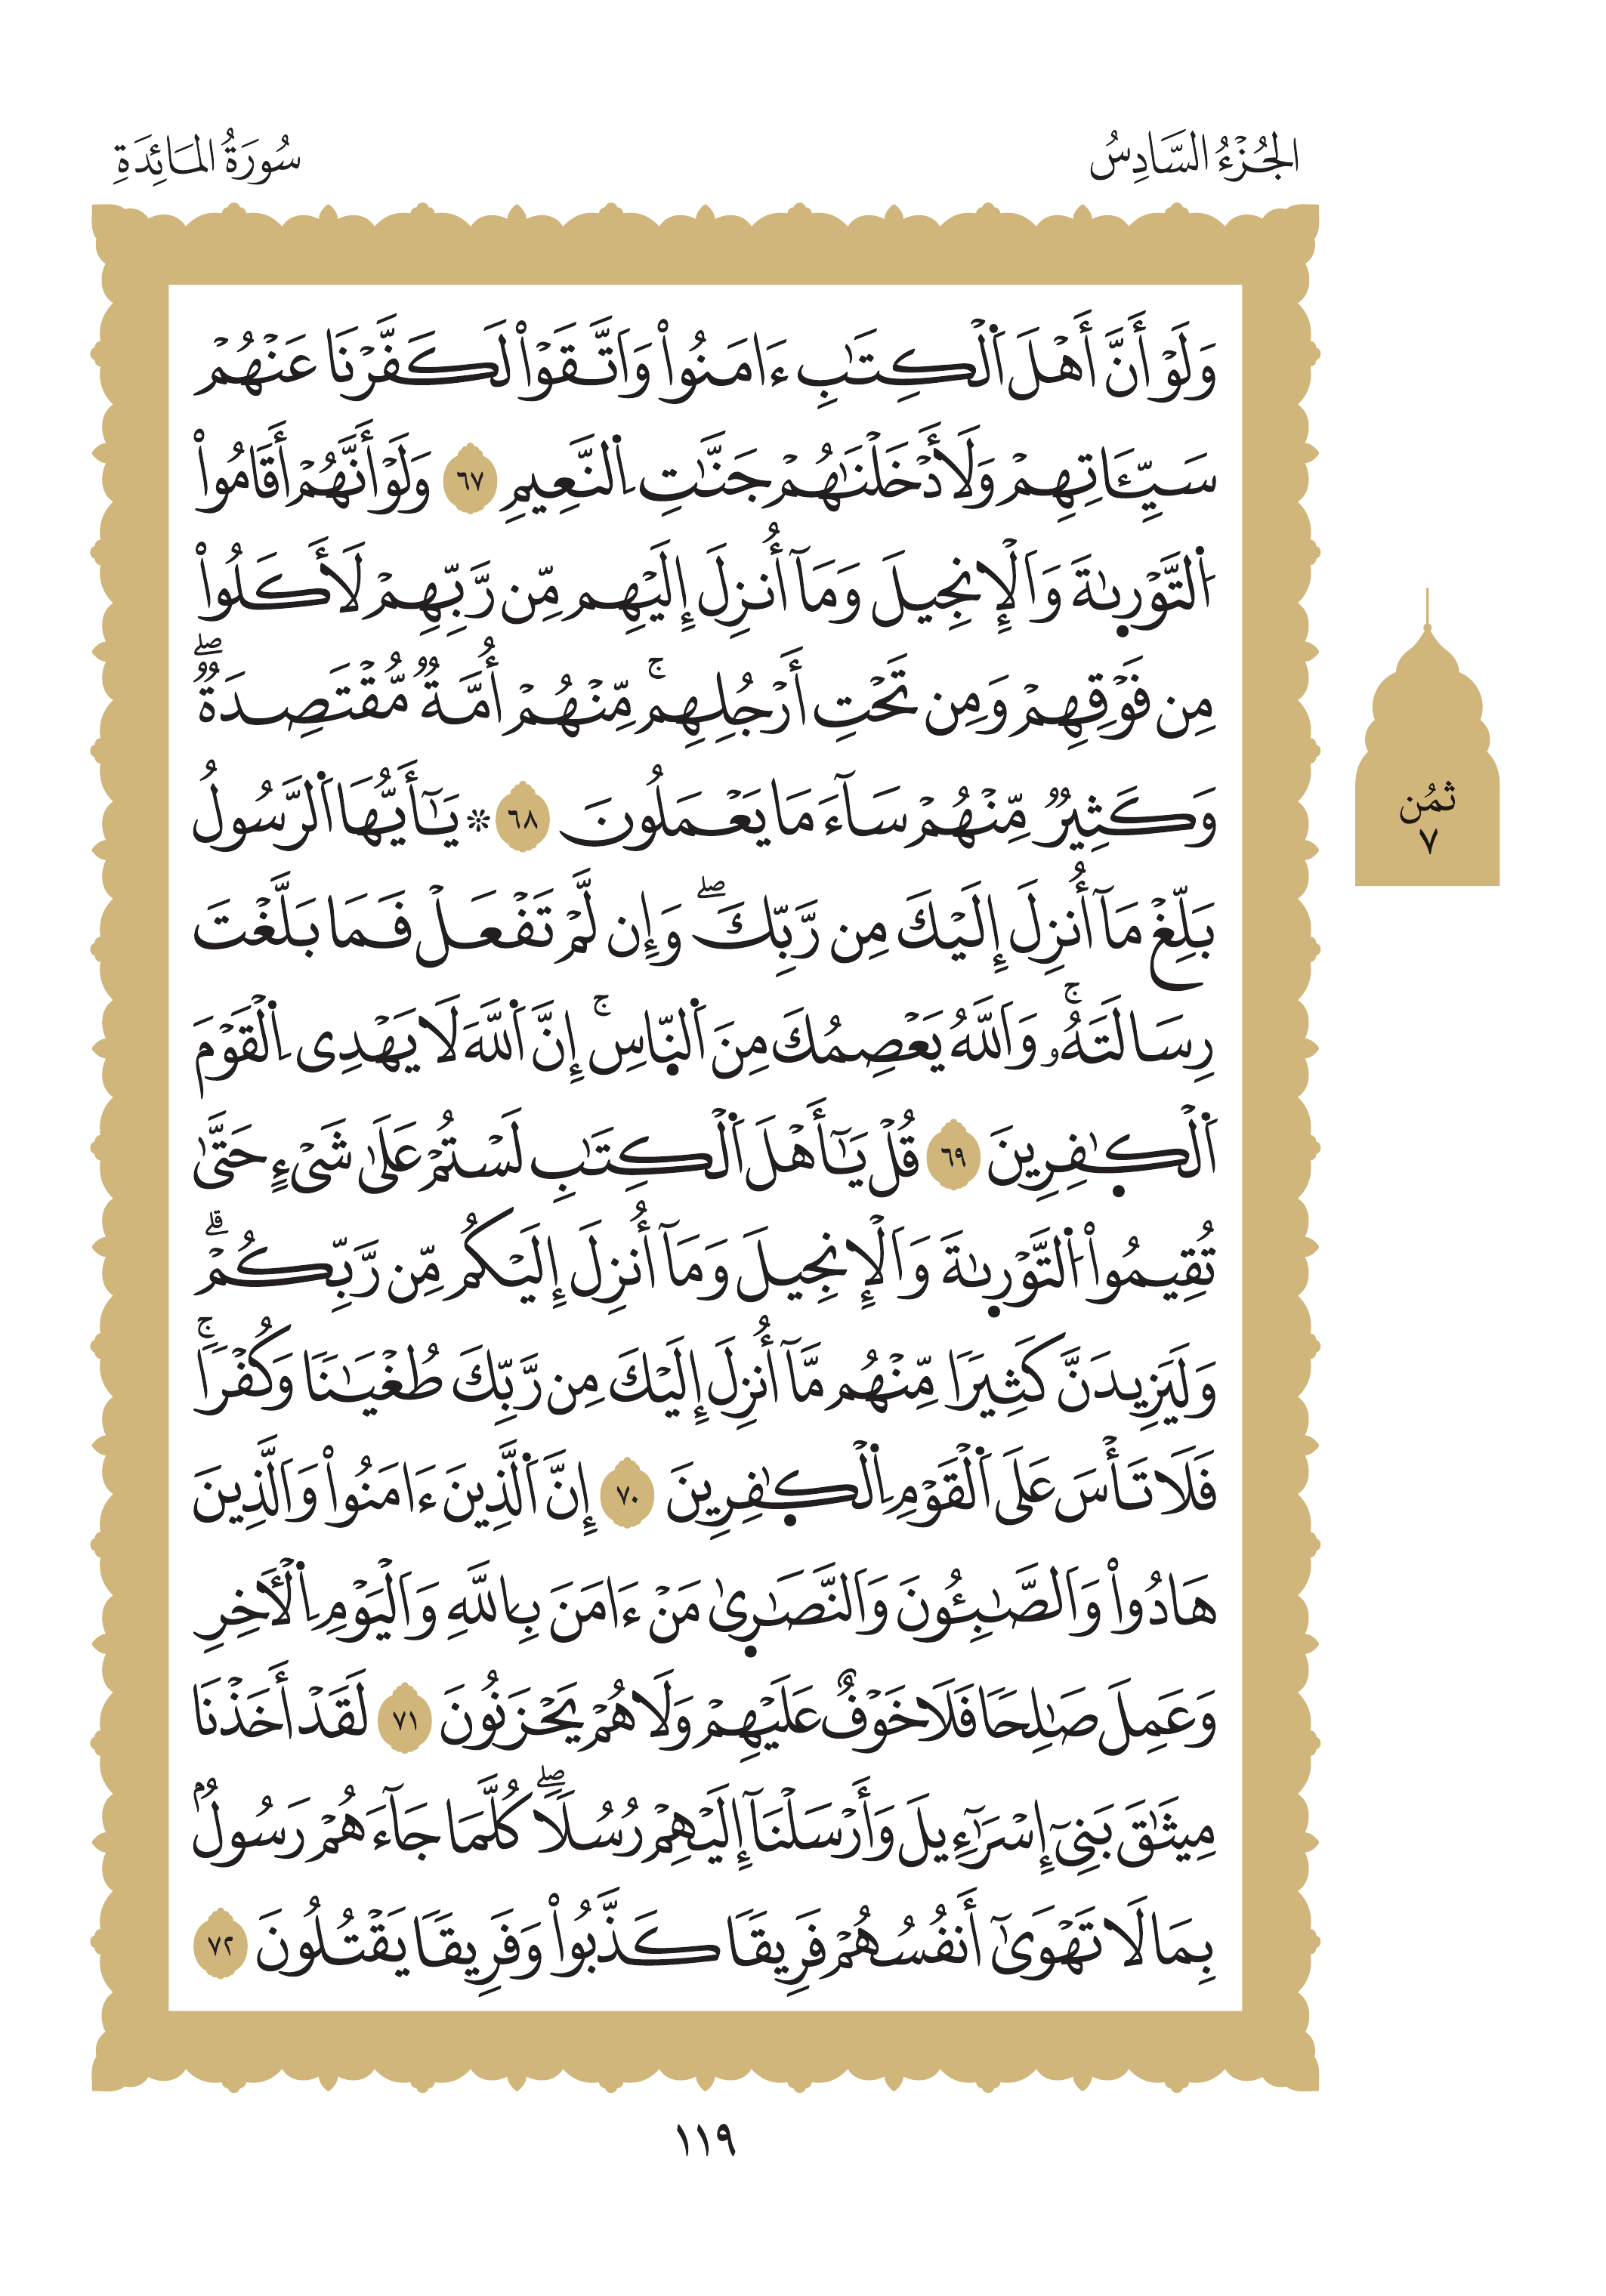 الجُزْءُ السَّادِسُ
سُورَةُ المَائِدَةِ
وَلَوْ أَنَّ أَهْلَ اَ۬لْكِتَٰبِ ءَامَنُواْ وَاتَّقَوْاْ لَكَفَّرْنَا عَنْهُمْ
سَيِّـَٔاتِهِمْ وَلَأَدْخَلْنَٰهُمْ جَنَّٰتِ اِ۬لنَّعِيمِ ٦٧ وَلَوْ أَنَّهُمْ أَقَامُواْ
اُ۬لتَّوْر۪ىٰةَ وَالْإِنجِيلَ وَمَآ أُنزِلَ إِلَيْهِم مِّن رَّبِّهِمْ لَأَكَلُواْ
مِن فَوْقِهِمْ وَمِن تَحْتِ أَرْجُلِهِمۚ مِّنْهُمْ أُمَّةٞ مُّقْتَصِدَةٞۖ
وَكَثِيرٞ مِّنْهُمْ سَآءَ مَا يَعْمَلُونَ ٦٨ ۞ يَٰٓأَيُّهَا اَ۬لرَّسُولُ
بَلِّغْ مَآ أُنزِلَ إِلَيْكَ مِن رَّبِّكَۖ وَإِن لَّمْ تَفْعَلْ فَمَا بَلَّغْتَ
رِسَالَتَهُۥۚ وَاللَّهُ يَعْصِمُكَ مِنَ اَ۬لنّ۪اسِۚ إِنَّ اَ۬للَّهَ لَا يَهْدِى اِ۬لْقَوْمَ
اَ۬لْكٰ۪فِرِينَ ٦٩ قُلْ يَٰٓأَهْلَ اَ۬لْكِتَٰبِ لَسْتُمْ عَلَىٰ شَىْءٍ حَتَّىٰ
تُقِيمُواْ اُ۬لتَّوْر۪ىٰةَ وَالْإِنجِيلَ وَمَآ أُنزِلَ إِلَيْكُم مِّن رَّبِّكُمْۗ
وَلَيَزِيدَنَّ كَثِيرٗا مِّنْهُم مَّآ أُنزِلَ إِلَيْكَ مِن رَّبِّكَ طُغْيَٰنٗا وَكُفْرٗاۚ
فَلَا تَأْسَ عَلَى اَ۬لْقَوْمِ اِ۬لْكٰ۪فِرِينَ ٧٠ إِنَّ اَ۬لَّذِينَ ءَامَنُواْ وَالَّذِينَ
هَادُواْ وَالصَّٰبِـُٔونَ وَالنَّصَٰر۪ىٰ مَنْ ءَامَنَ بِاللَّهِ وَالْيَوْمِ اِ۬لْأٓخِرِ
وَعَمِلَ صَٰلِحٗا فَلَا خَوْفٌ عَلَيْهِمْ وَلَا هُمْ يَحْزَنُونَ ٧١ لَقَدْ أَخَذْنَا
مِيثَٰقَ بَنِىٓ إِسْرَٰٓءِيلَ وَأَرْسَلْنَآ إِلَيْهِمْ رُسُلٗاۖ كُلَّمَا جَآءَهُمْ رَسُولُۢ
بِمَا لَا تَهْوَىٰٓ أَنفُسُهُمْ فَرِيقٗا كَذَّبُواْ وَفَرِيقٗا يَقْتُلُونَ ٧٢
ثمُن
٧
١١٩